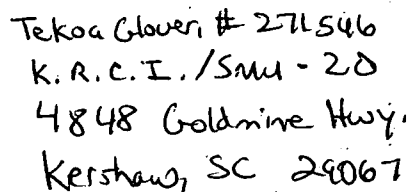 Tekoa Glover, # 271546
K.R.C.I./SMU - 20
4848 Goldmine Hwy.
Kershaw, SC 29067